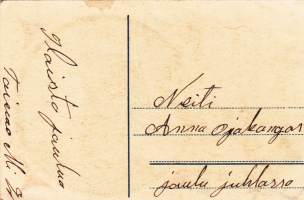 Iloista joulua
Toivoo M. J.
Neiti
Anna Ojakangas
joulu juhlassa